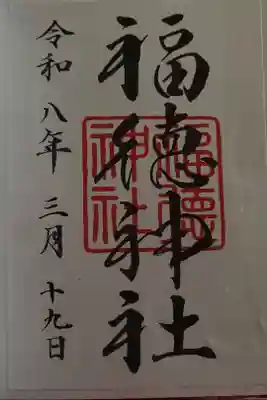 福徳神社
福德神社
令和八年三月十九日